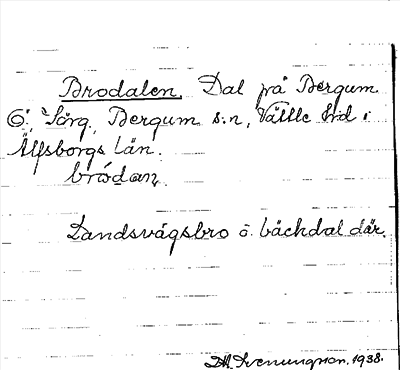 Brodalen. Dal på Bergum
Ö. Sörg, Bergum s:n, Vättle hrd i
Älfsborgs län.
bródan
Landsvägsbro ö. bäckdal där.
Svenungsson. 1938.